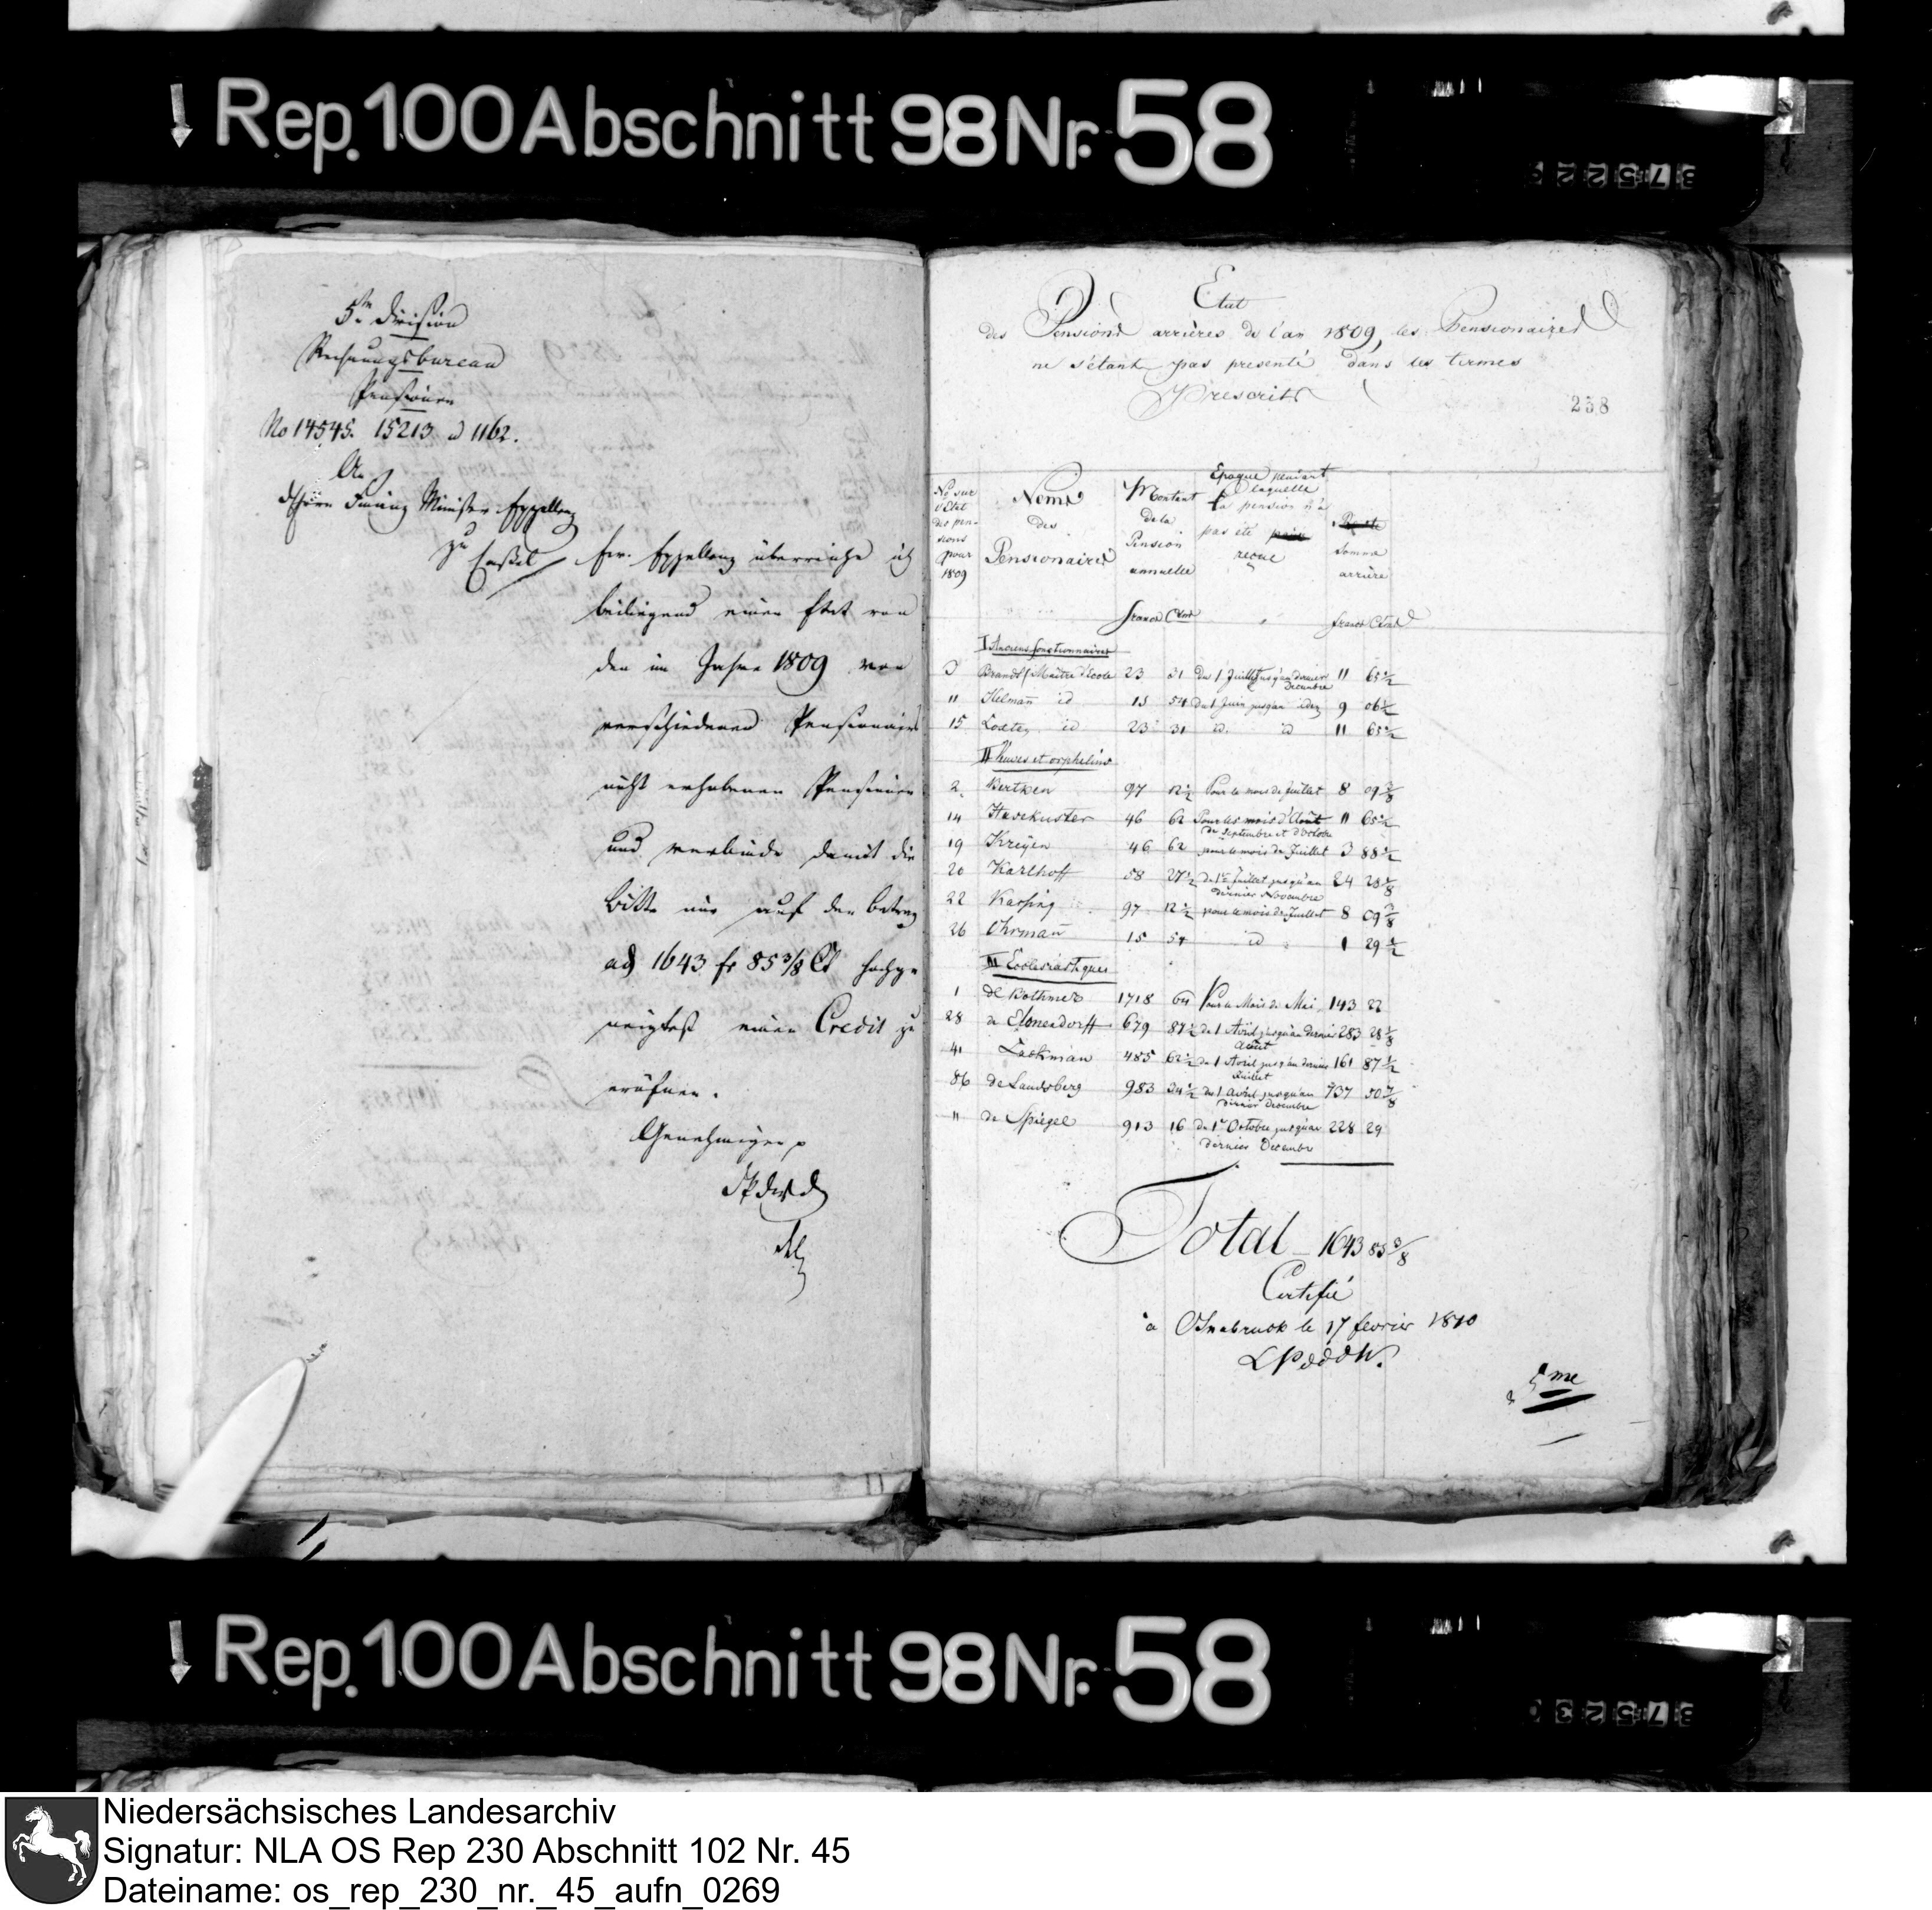 Rep. 100 Abschnitt 98 Nr. 58
5te Division
Rechnungsbureau
Pensionen
No 14545. 15213 u 1162.
An
Herrn Finanz Minister Excellenz
zu Cassel
Ew. Excellenz überreiche ich
beiliegend einen Etat von
den im Jahre 1809 von
verschiedenen Pensionairs
nicht erhobenen Pensionen
und verbinde damit die
Bitte mir auf den Betrag
ad 1643 fr 85 3/8 Ct hochge
neigtest einen Credit zu
eröfnen.
Genehmigen p
Etat
des Pensions arrières de l'an 1809, les Pensionaires
ne s'étant pas presenté dans les termes
Prescrits
238
No sur l'Etat des pensions pour 1809
Noms des Pensionaires
Montant de la Pension annuelle
Epoque pendant laquelle la pension n'a pas été reçue
Somme arrière
francs Cent " francs Cent
I Anciens fonctionnaires
3 Brandt (Maitre d'Ecole 23 31 du 1 Juillet jusqu'au dernier Decembre 11 65 1/2
11 Helman̄ id 15 54 du 1 Juin jusqu'au idem 9 06 1/2
15 id 23 31 id. id 11 65 1/2
II Veuves et orphelins
2. Bertken 97 12 1/2 Pour le mois de Juillet 8 09 3/8
14 Havekuster 46 62 Pour les mois d'Août 11 65 1/2
de Septembre et d'Octobre
19 Kreyen 46 62 pour le mois de Juillet 3 88 1/2
20 Karlhoff 58 27 1/2 du 1r Juillet jusqu'au 24 28 1/8
dernier Novembre
22 Karsing 97 12 1/2 pour le mois de Juillet 8 09 3/8
26 Ohrman̄ 15 54 id 1 29 1/2
III Ecclesiastiques
1 de Bothmer 1718 64 Pour le Mois de Mai 143 22
28 de Elmendorff 679 87 1/2 du 1 Avril jusqu'au dernier 283 28 1/8
Août
41 Lackman 485 62 1/2 du 1 Avril jusqu'au dernier 161 87 1/2
Juillet
86 de Landsberg 983 34 1/2 du 1 Avril jusqu'au 737 50 7/8
dernier Decembre
" de Spiegel 913 16 du 1r Octobre jusqu'au 228 29
dernier Decembre
Total 1643 85 3/8
Certifié
à Osnabruck le 17 fevrier 1810
LPdddW.
5me
Rep. 100 Abschnitt 98 Nr. 58
Niedersächsisches Landesarchiv
Signatur: NLA OS Rep 230 Abschnitt 102 Nr. 45
Dateiname: os_rep_230_nr._45_aufn_0269